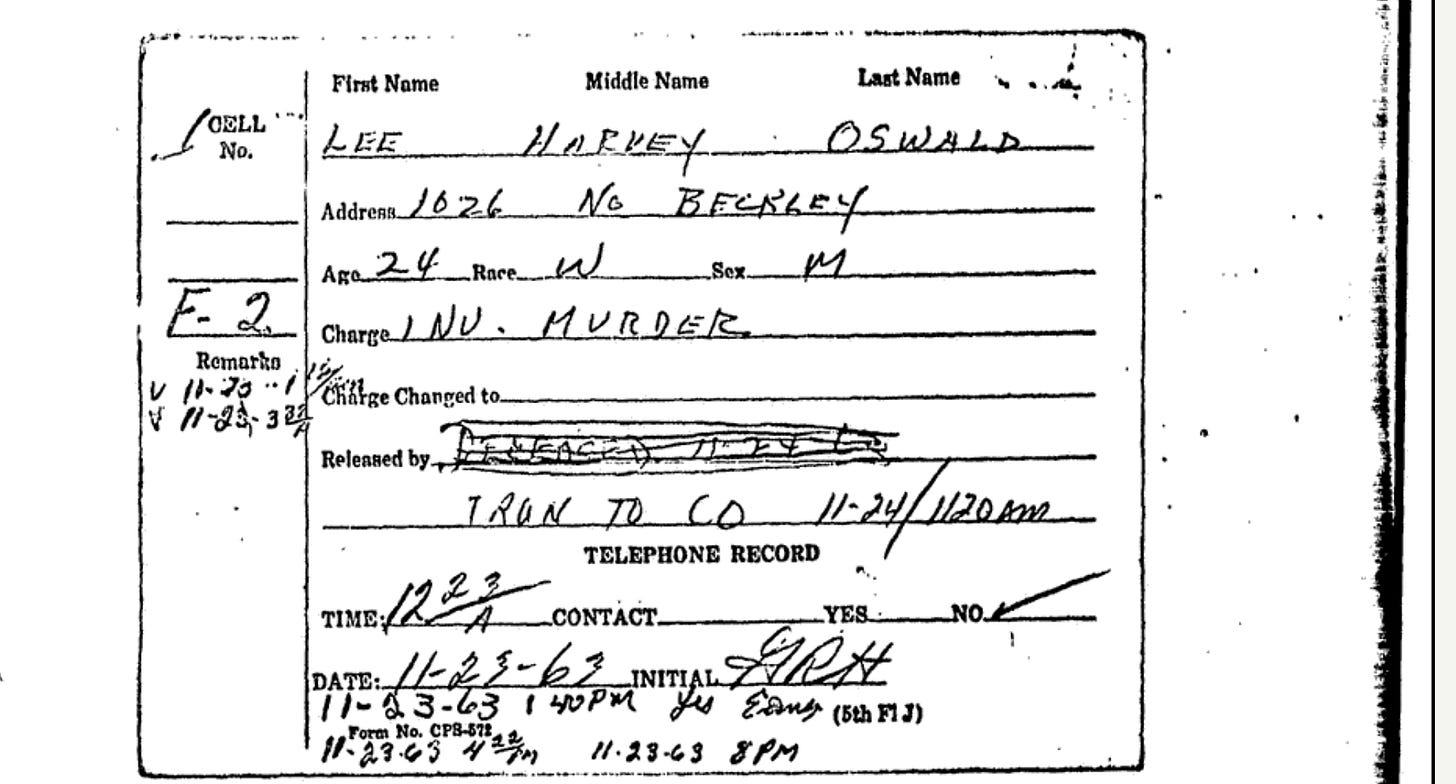 First Name Middle Name Last Name
CELL
No.
LEE HARVEY OSWALD
Address 1026 No BECKLEY
Age 24 Race W Sex M
F- 2
Charge INV. MURDER
Remarks
11-23
Charge Changed to
11-23- 3 22/A
Released by DECEASED 11-24
TRAN TO CO 11-24/1120AM
TELEPHONE RECORD
TIME: 12 23/A CONTACT YES NO
DATE: 11-23-63 INITIAL
11-23-63 1 40PM yes (5th Fl J)
Form No. CPS-572
11-23-63 4 22/PM 11-23-63 8PM